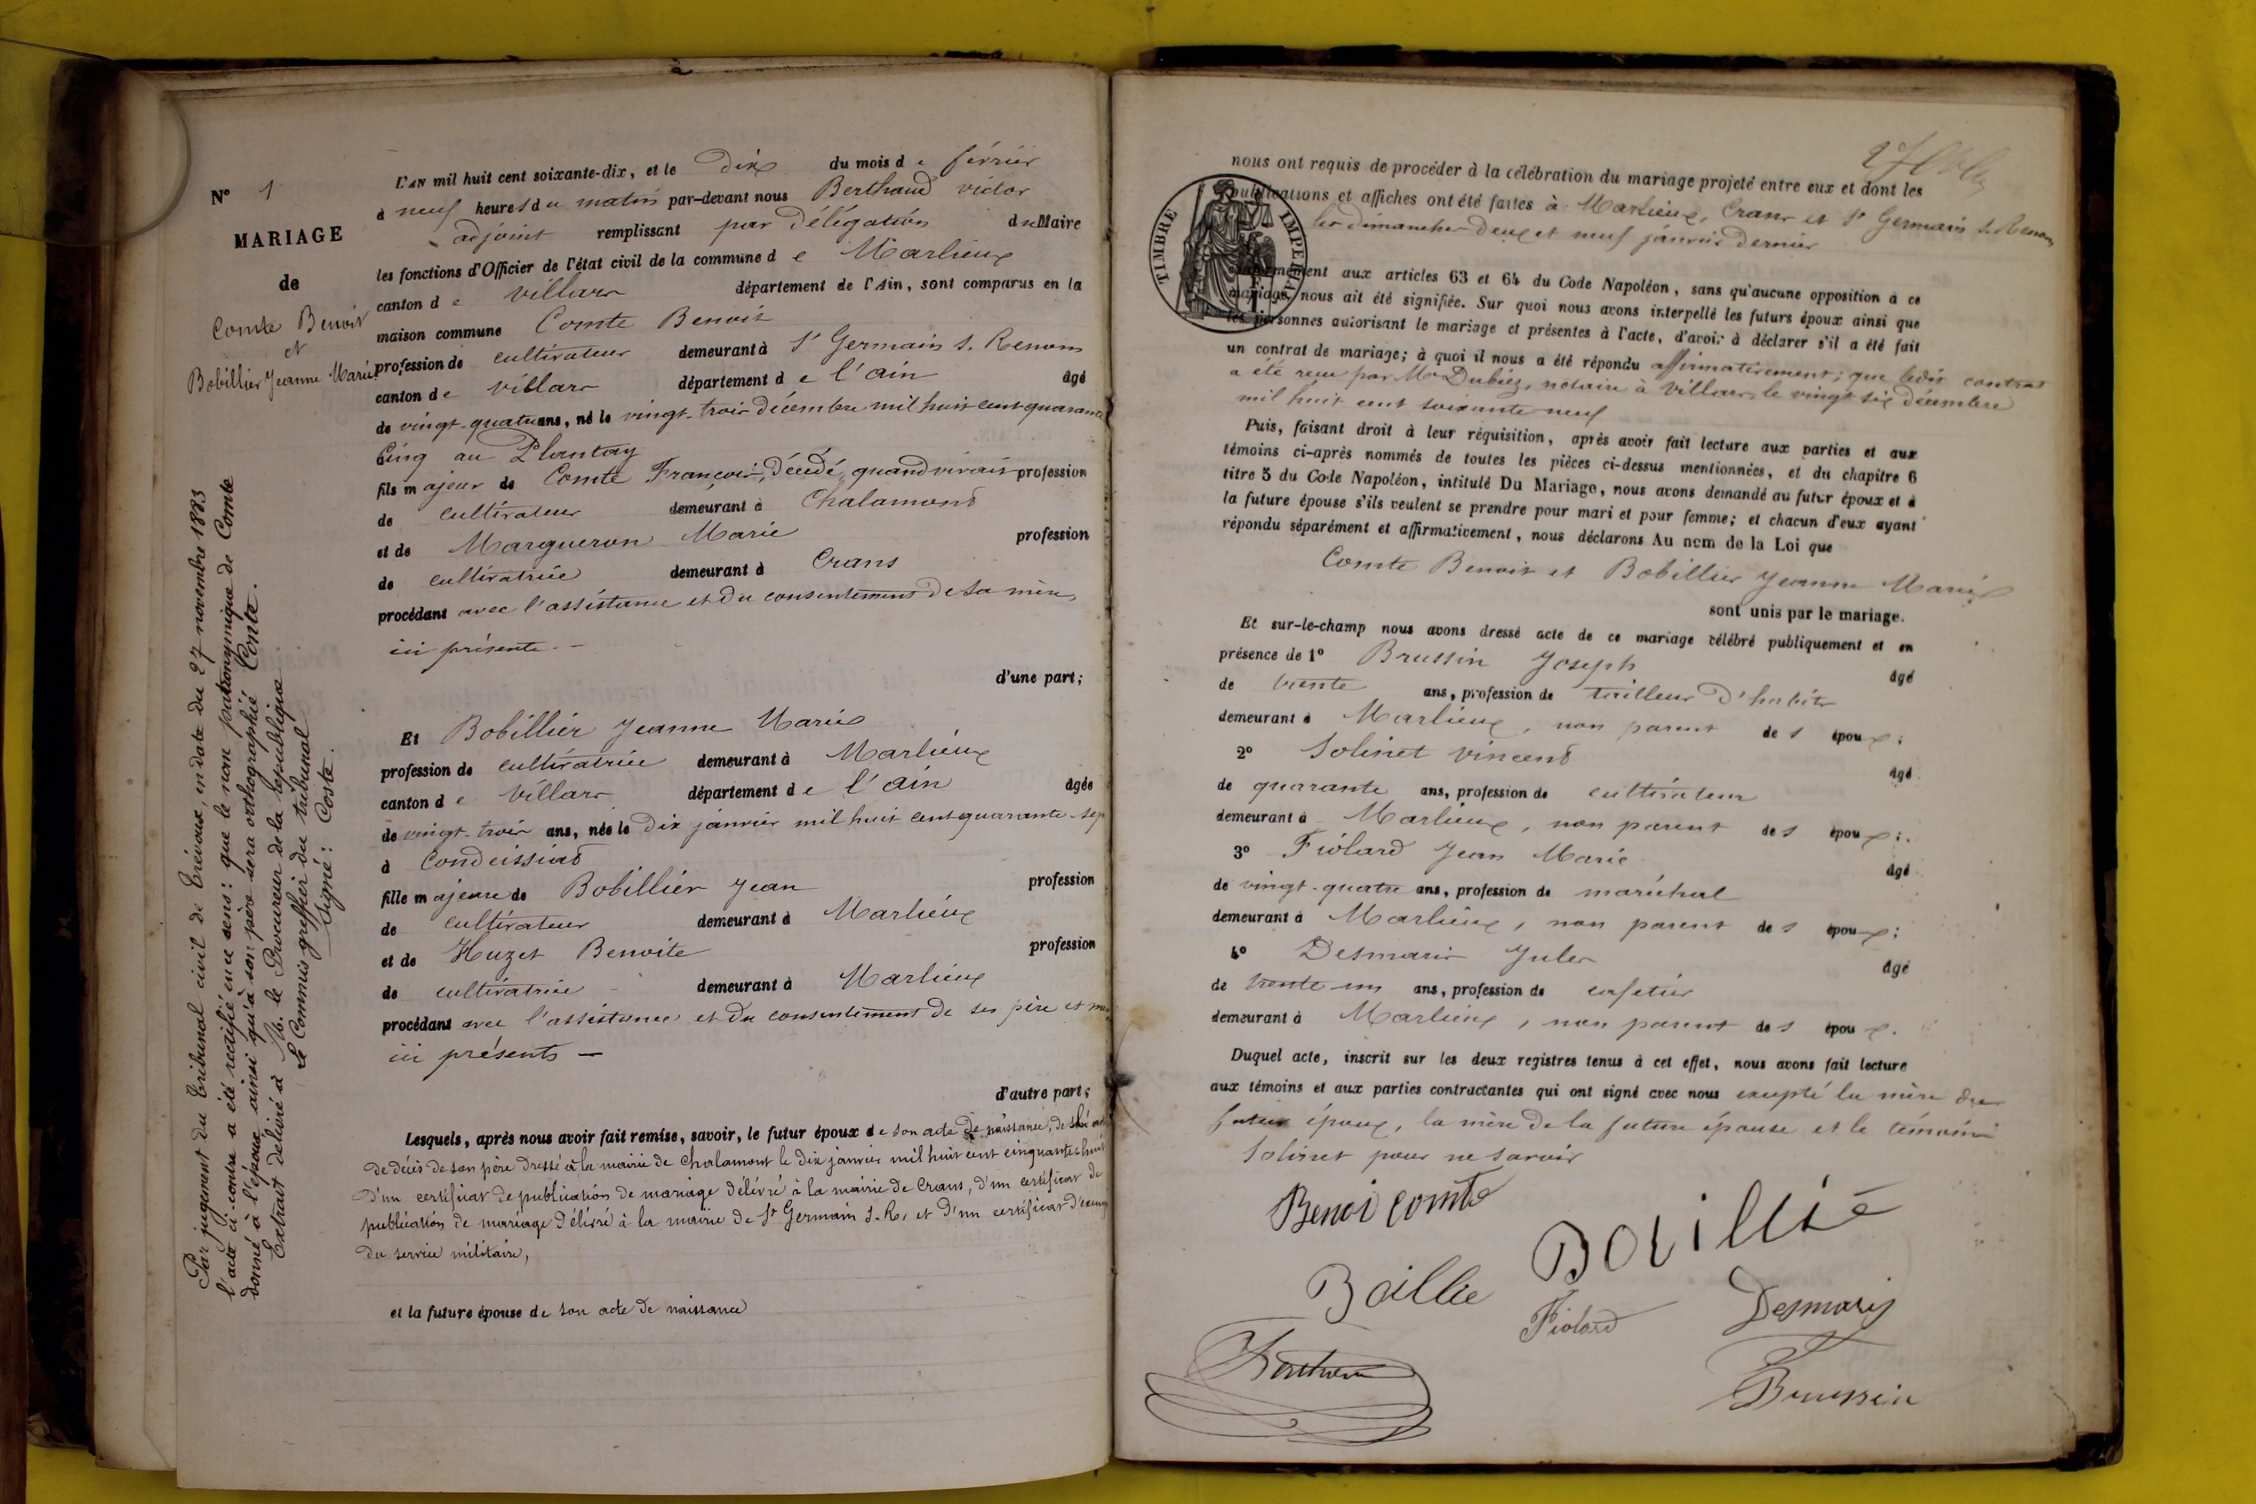 N° 1
MARIAGE
de
Comte Benoit
et
Bobillier Jeanne Marie
Par jugement du Tribunal civil de Trévoux, en date du 27 novembre 1883
l'acte ci-contre a été rectifié en ce sens : que le nom patronymique de Comte
donné à l'époux ainsi qu'à son père sera orthographié Conte.
Extrait délivré à M. le Procureur de la république
Le Commis greffier du tribunal
Signé : Coste.
L'AN mil huit cent soixante-dix, et le dix du mois de février
à neuf heures du matin par-devant nous Berthaud victor
adjoint remplissant par délégation du Maire
les fonctions d'Officier de l'état civil de la commune de Marlieux
canton de villars département de l'Ain, sont comparus en la
maison commune Comte Benoit
profession de cultivateur demeurant à St Germain s. Renom
canton de villars département de l'ain âgé
de vingt-quatre ans, né le vingt-trois décembre mil huit cent quarante
Cinq au Plantay
fils majeur de Comte François, décédé, quand vivait profession
de cultivateur demeurant à Chalamont
et de Margueron Marie profession
de cultivatrice demeurant à Crans
procédant avec l'assistance et du consentement de sa mère,
ici présente. —
d'une part;
Et Bobillier Jeanne Marie
profession de cultivatrice demeurant à Marlieux
canton de villars département de l'ain âgée
de vingt-trois ans, née le dix janvier mil huit cent quarante-sept
à Condeissiat
fille majeure de Bobillier Jean profession
de cultivateur demeurant à Marlieux
et de Huzet Benoite profession
de cultivatrice demeurant à Marlieux
procédant avec l'assistance et du consentement de ses père et mère
ici présents —
d'autre part;
Lesquels, après nous avoir fait remise, savoir, le futur époux de son acte de naissance, de
de décès de son père dressé à la mairie de Chalamont le dix janvier mil huit cent cinquante-huit
d'un certificat de publication de mariage délivré à la mairie de Crans, d'un certificat de
publication de mariage délivré à la mairie de St Germain s. R, et d'un certificat d'exemp
du service militaire,
et la future épouse de son acte de naissance
nous ont requis de procéder à la célébration du mariage projeté entre eux et dont les
publications et affiches ont été faites à Marlieux, Crans et St Germain s. Renom
les dimanches deux et neuf janvier dernier
TIMBRE IMPERIAL
conformément aux articles 63 et 64 du Code Napoléon, sans qu'aucune opposition à ce
mariage nous ait été signifiée. Sur quoi nous avons interpellé les futurs époux ainsi que
les personnes autorisant le mariage et présentes à l'acte, d'avoir à déclarer s'il a été fait
un contrat de mariage; à quoi il nous a été répondu affirmativement; que ledit contrat
a été reçu par Me Dubiez, notaire à villars, le vingt six décembre
mil huit cent soixante neuf
Puis, faisant droit à leur réquisition, après avoir fait lecture aux parties et aux
témoins ci-après nommés de toutes les pièces ci-dessus mentionnées, et du chapitre 6
titre 5 du Code Napoléon, intitulé Du Mariage, nous avons demandé au futur époux et à
la future épouse s'ils veulent se prendre pour mari et pour femme; et chacun d'eux ayant
répondu séparément et affirmativement, nous déclarons Au nom de la Loi que
Comte Benoit et Bobillier Jeanne Marie
sont unis par le mariage.
Et sur-le-champ nous avons dressé acte de ce mariage célébré publiquement et en
présence de 1° Brussin Joseph âgé
de trente ans, profession de tailleur d'habits
demeurant à Marlieux, non parent des époux;
2° Solinet vincent âgé
de quarante ans, profession de cultivateur
demeurant à Marlieux, non parent des époux;
3° Fiolard Jean Marie âgé
de vingt-quatre ans, profession de maréchal
demeurant à Marlieux, non parent des époux;
4° Desmaris Jules âgé
de trente-un ans, profession de cafetier
demeurant à Marlieux, non parent des époux.
Duquel acte, inscrit sur les deux registres tenus à cet effet, nous avons fait lecture
aux témoins et aux parties contractantes qui ont signé avec nous excepté la mère du
futur époux, la mère de la future épouse et le témoin
Solinet pour ne savoir
Benoi comte
Bovillié
Boillie
Fiolard
Desmaris
Brussin